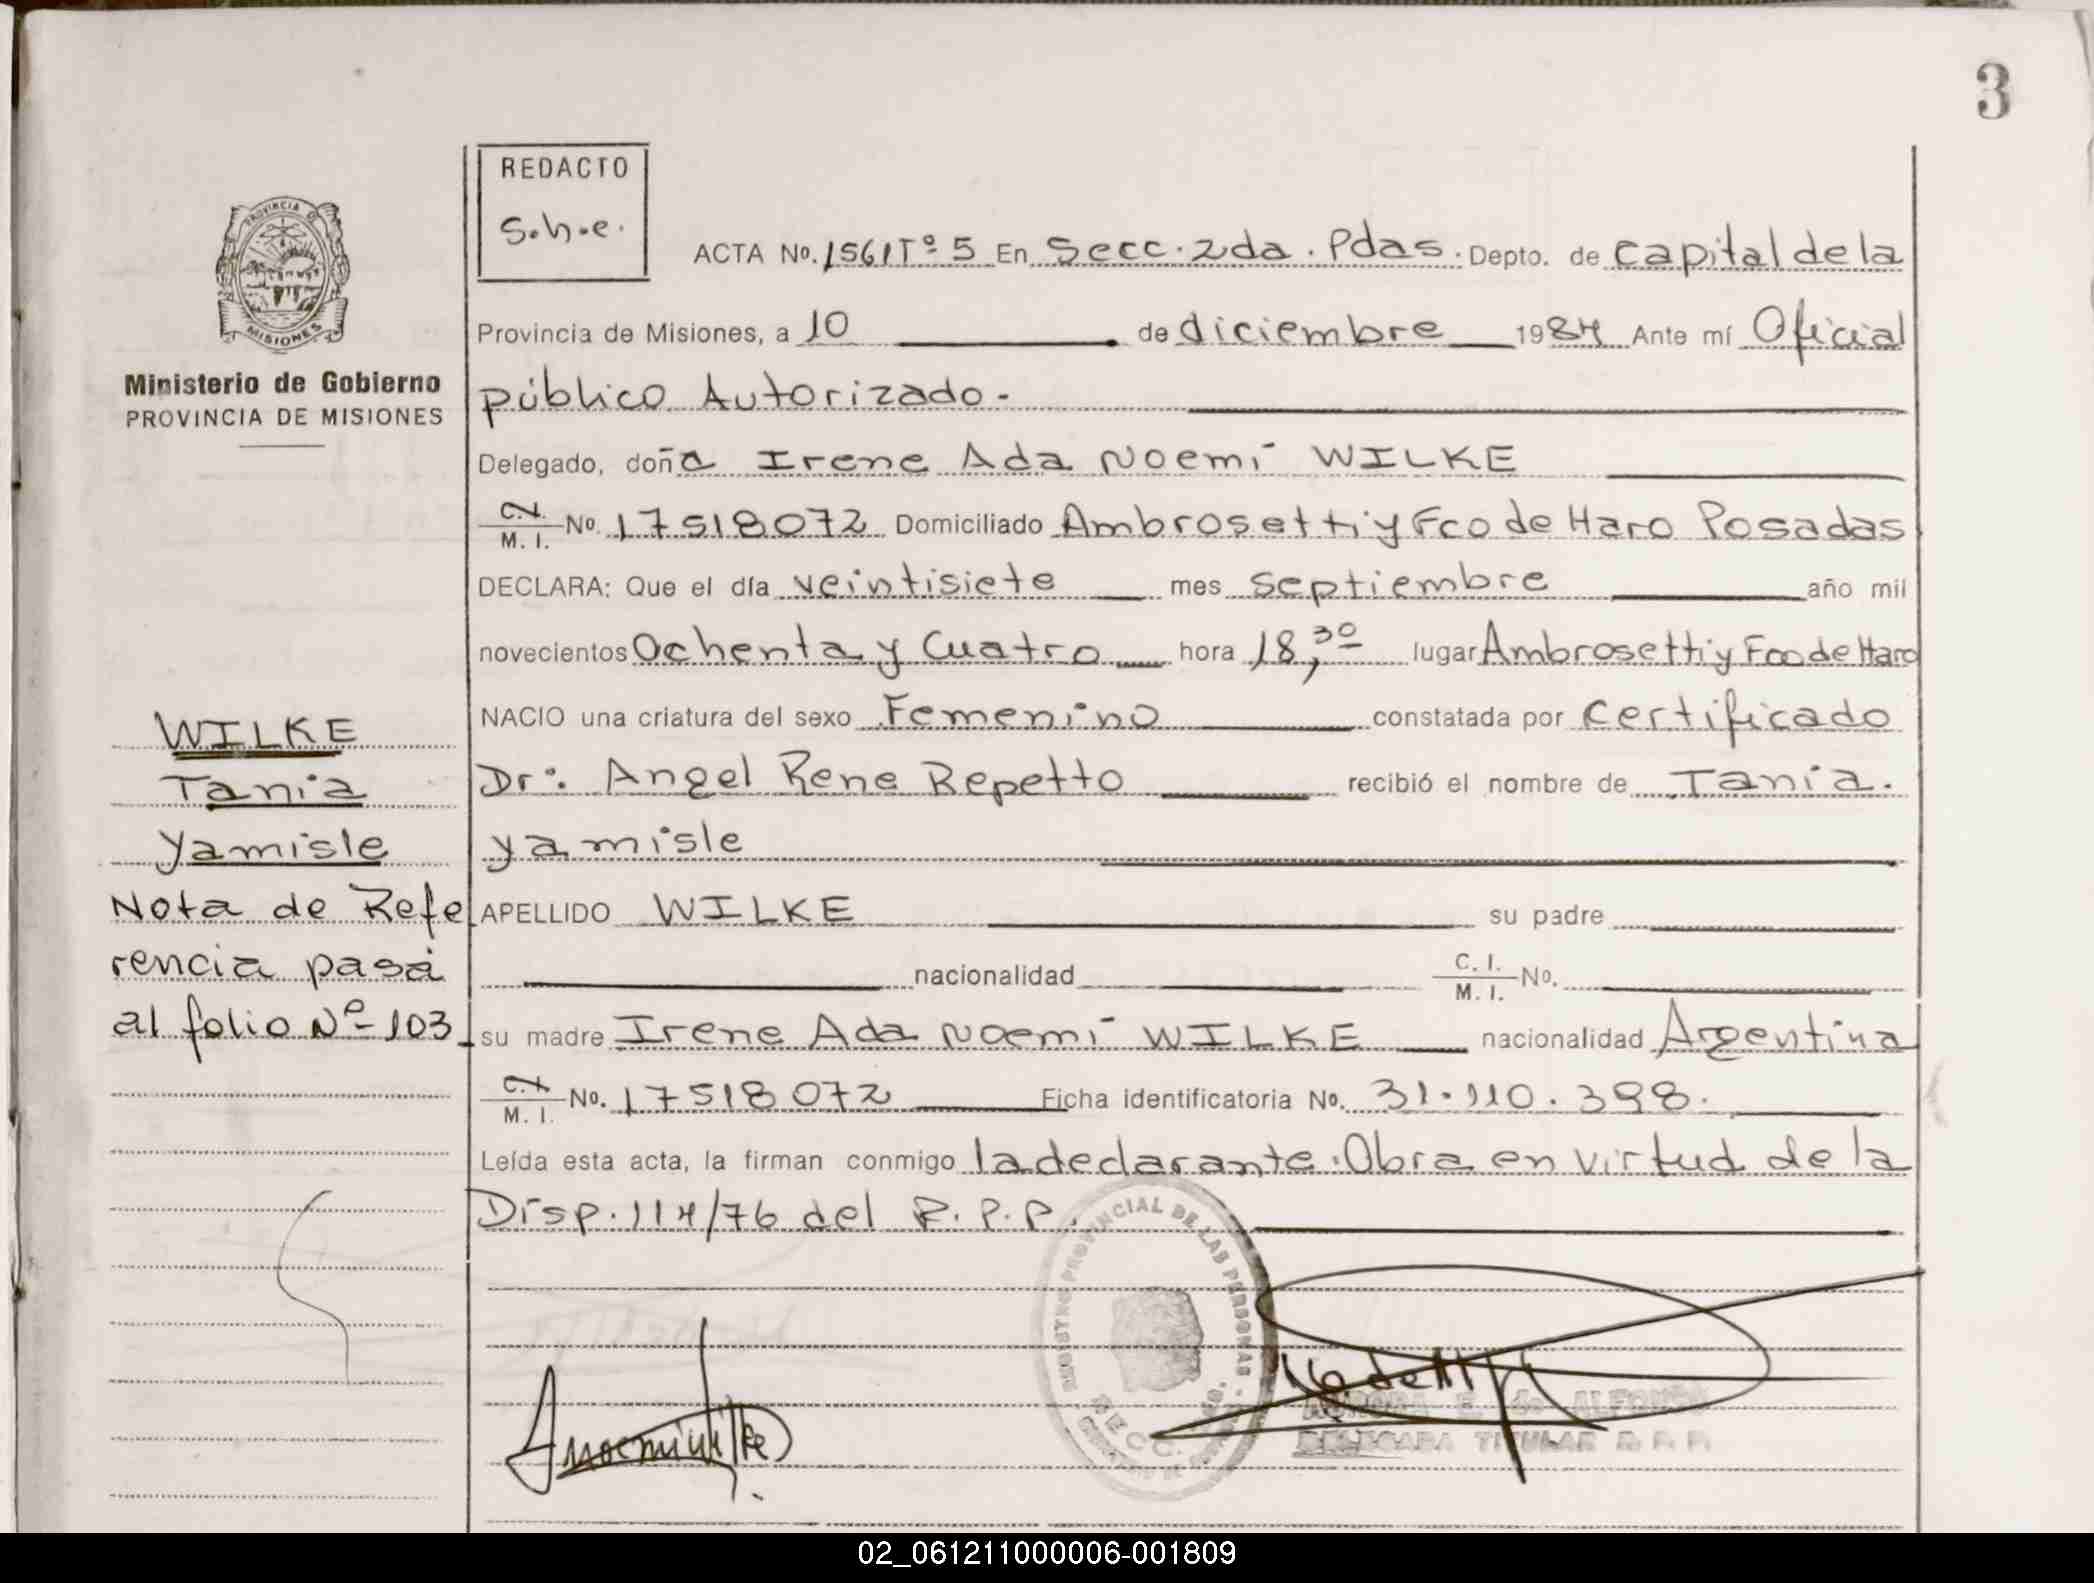 3
REDACTO
S.h.e.
ACTA No. 1561 Tº 5 En Secc. 2da. Pdas. Depto. de Capital de la
Provincia de Misiones, a 10 de diciembre 1984 Ante mí Oficial
público Autorizado.
Delegado, doña Irene Ada Noemí WILKE
C.I. / M. I. No. 17518072 Domiciliado Ambrosetti y Fco de Haro Posadas
DECLARA: Que el día veintisiete mes septiembre año mil
novecientos Ochenta y Cuatro hora 18,30 lugar Ambrosetti y Fco de Haro
NACIO una criatura del sexo Femenino constatada por Certificado
Dr. Angel Rene Repetto recibió el nombre de Tania.
yamisle
APELLIDO WILKE su padre
nacionalidad C. I. / M. I. No.
su madre Irene Ada Noemí WILKE nacionalidad Argentina
C.I. / M. I. No. 17518072 Ficha identificatoria No. 31.110.398.
Leída esta acta, la firman conmigo la declarante. Obra en virtud de la
Disp. 114/76 del R.P.P.
PROVINCIA DE
MISIONES
Ministerio de Gobierno
PROVINCIA DE MISIONES
WILKE
Tania
Yamisle
Nota de Refe
rencia pasa
al folio Nº 103
REGISTRO PROVINCIAL DE LAS PERSONAS
SECC.
AURORA E. de ALFONSO
DELEGADA TITULAR R. P. P.
02_061211000006-001809